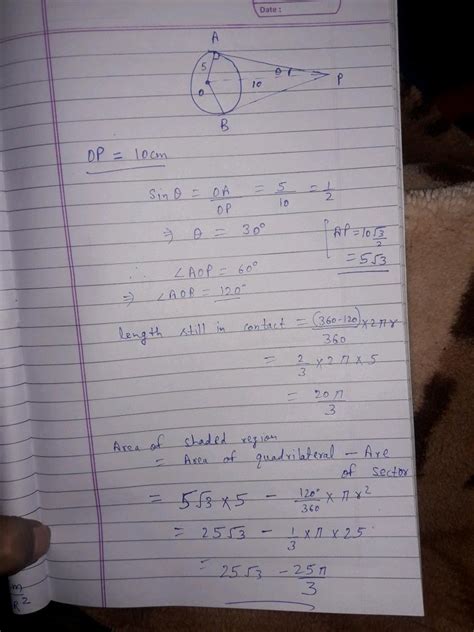 Date :
A
5
O
10
θ
P
B
OP = 10cm
Sinθ = OA/OP = 5/10 = 1/2
⇒ θ = 30°
AP = 10√3/2
= 5√3
∴ ∠AOP = 60°
⇒ ∠AOP = 120°
length still in contact = (360-120)/360 × 2πr
= 2/3 × 2π × 5
= 20π/3
Area of shaded region
= Area of quadrilateral – Are of sector
= 5√3 × 5 – 120°/360 × πr²
= 25√3 – 1/3 × π × 25
= 25√3 – 25π/3